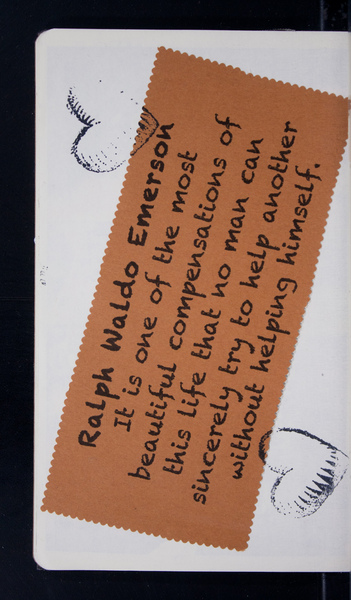 Ralph Waldo Emerson
It is one of the most
beautiful compensations of
this life that no man can
sincerely try to help another
without helping himself.